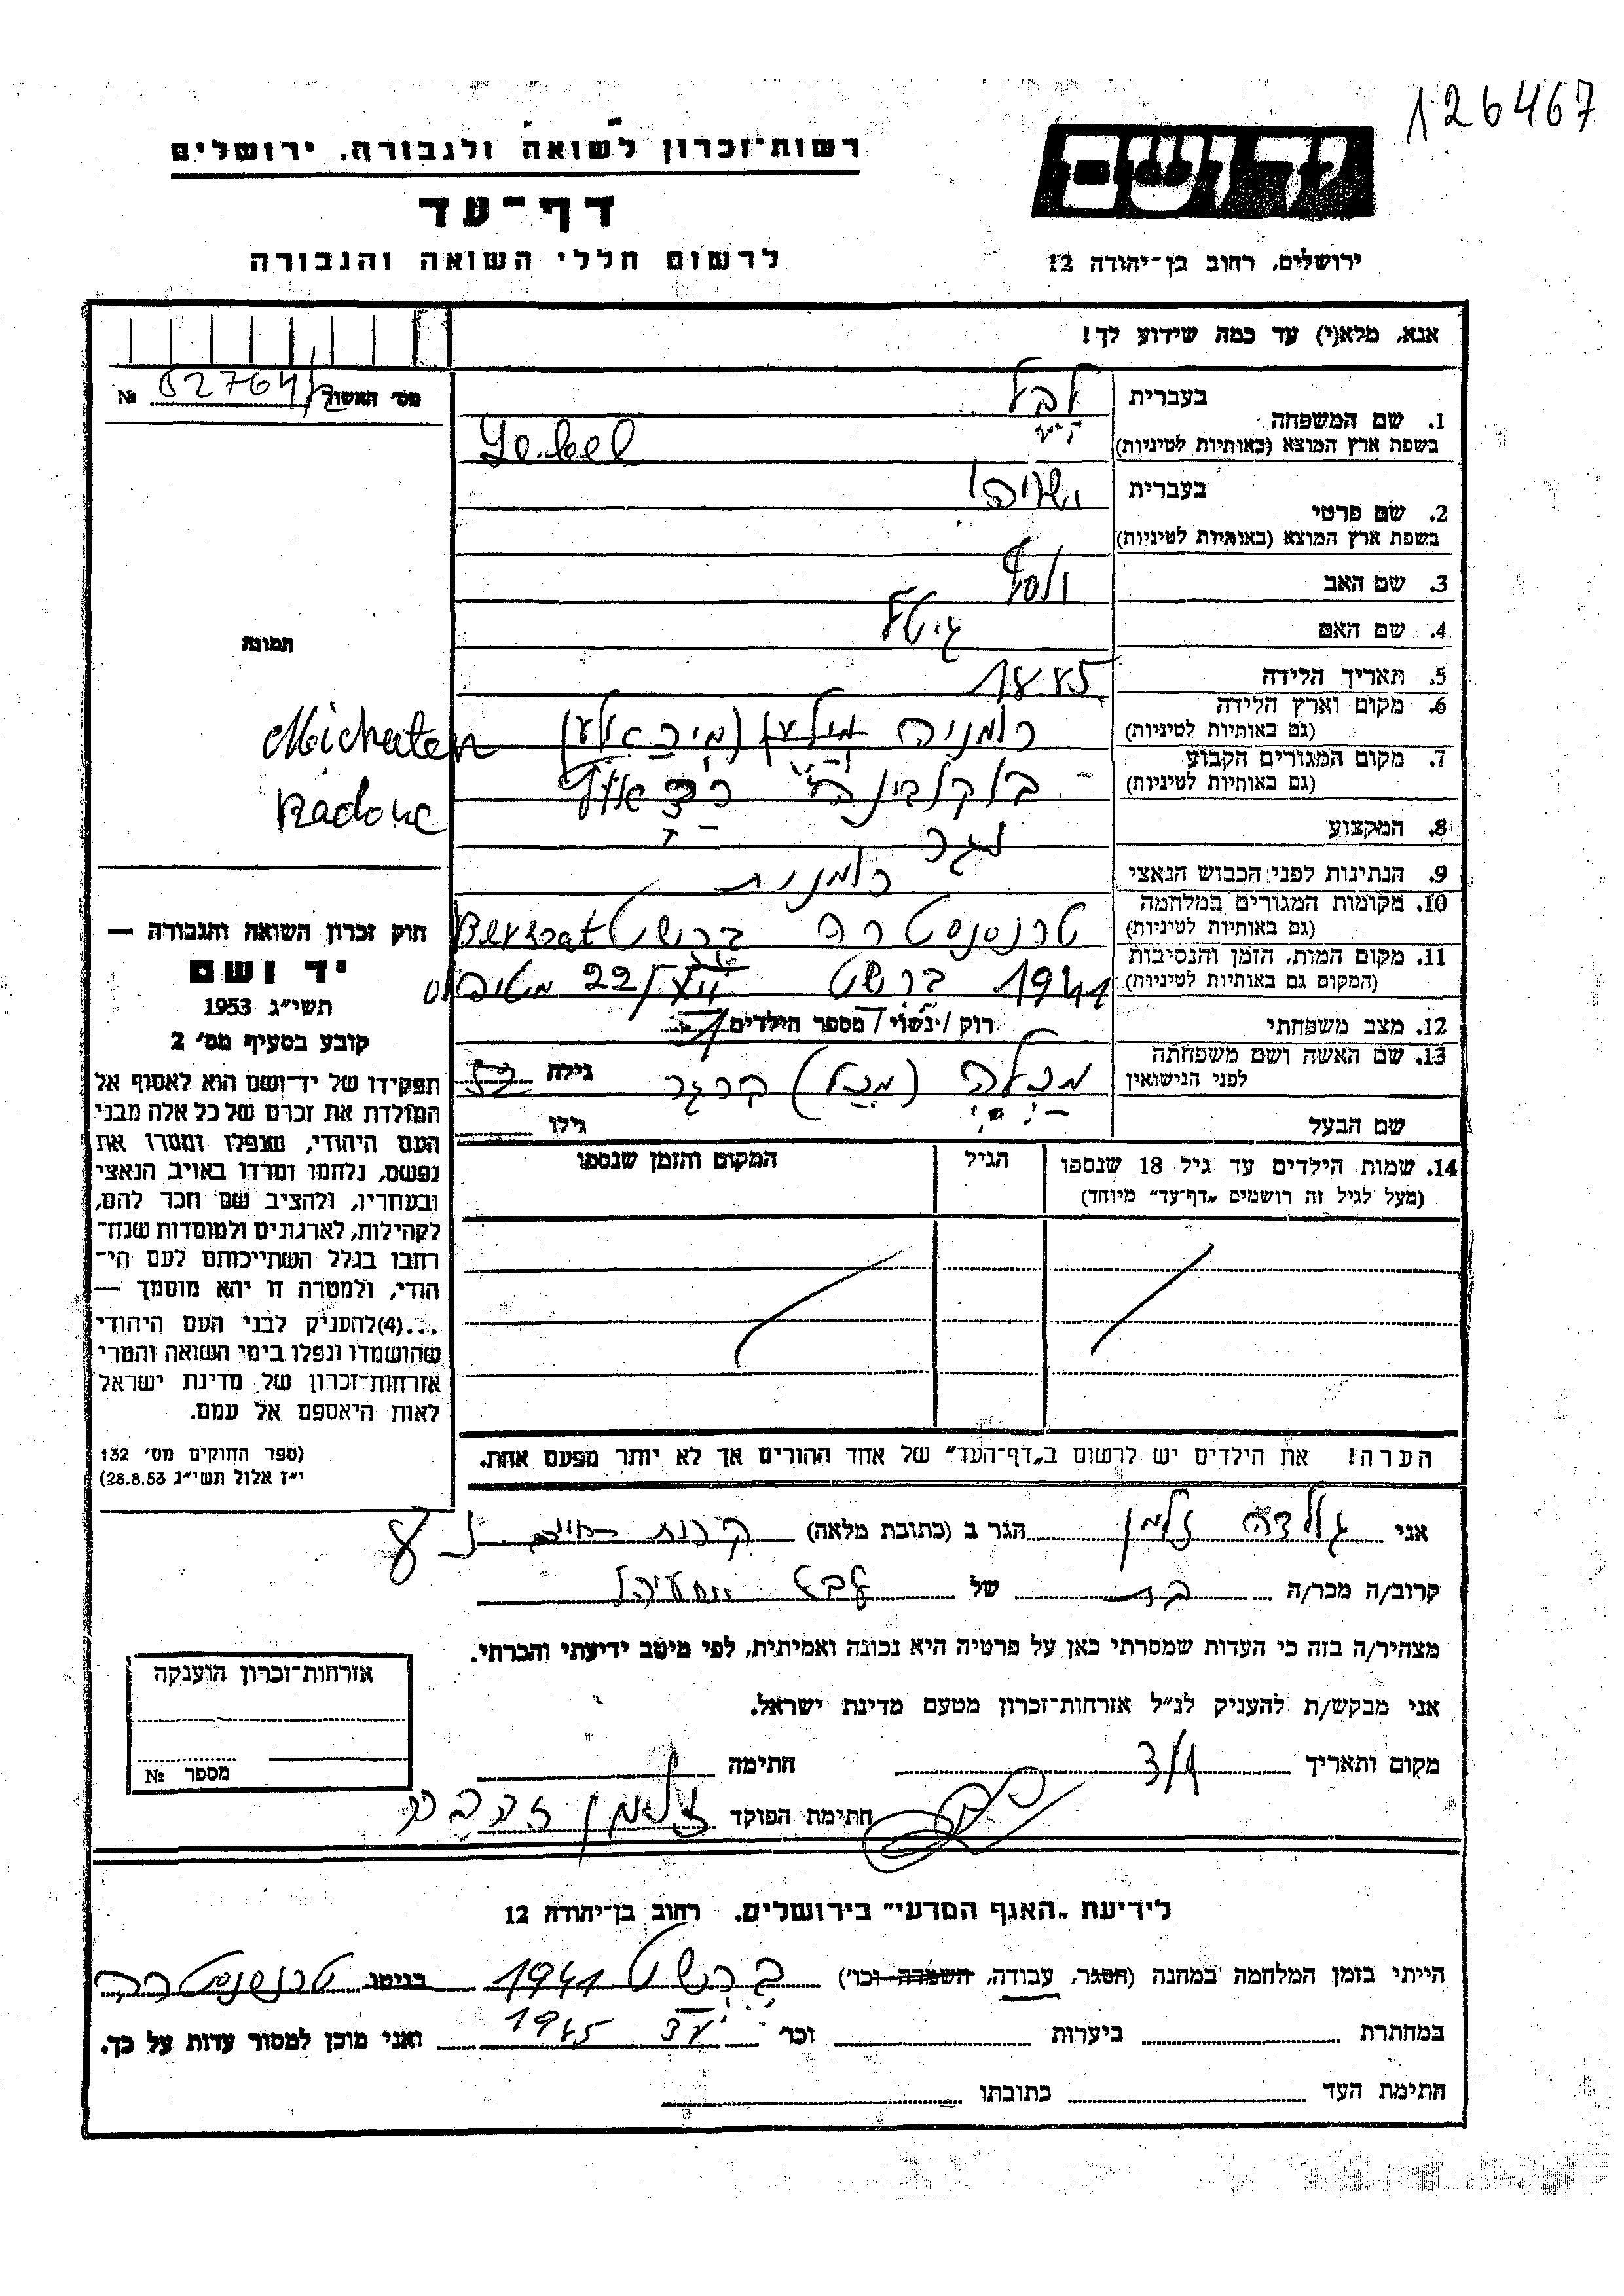 126467
רשות־זכרון לשואה ולגבורה, ירושלים
דף־עד
לרשום חללי השואה והגבורה
ידושם
ירושלים, רחוב בן־יהודה 12
אנא, מלא(י) עד כמה שידוע לך!
מס' האשור № 02764/
1. שם המשפחה
בעברית לבל
בשפת ארץ המוצא (באותיות לטיניות) Lebel
2. שם פרטי
בעברית
בשפת ארץ המוצא (באותיות לטיניות)
3. שם האב יוסף
4. שם האם גיטל
5. תאריך הלידה 1885
6. מקום וארץ הלידה רומניה
(גם באותיות לטיניות)
7. מקום המגורים הקבוע בוקובינה
(גם באותיות לטיניות)
8. המקצוע
9. הנתינות לפני הכבוש הנאצי רומנית
10. מקומות המגורים במלחמה טרנסנסטריה ברשט Berschat
(גם באותיות לטיניות)
11. מקום המות, הזמן והנסיבות 1941 ברשט 22/XII מטיפוס
(המקום גם באותיות לטיניות)
12. מצב משפחתי רוק / נשוי / מספר הילדים
13. שם האשה ושם משפחתה ברגר גילה 52
לפני הנישואין
שם הבעל גילו
תמונה
14. שמות הילדים עד גיל 18 שנספו
(מעל לגיל זה רושמים „דף־עד״ מיוחד)
הגיל
המקום והזמן שנספו
הערה! את הילדים יש לרשום ב„דף־העד״ של אחד ההורים אך לא יותר מפעם אחת.
חוק זכרון השואה והגבורה —
יד ושם
תשי״ג 1953
קובע בסעיף מס' 2
תפקידו של יד־ושם הוא לאסוף אל
המולדת את זכרם של כל אלה מבני
העם היהודי, שנפלו ומסרו את
נפשם, נלחמו ומרדו באויב הנאצי
ובעוזריו, ולהציב שם וזכר להם,
לקהילות, לארגונים ולמוסדות שנח־
רחבו בגלל השתייכותם לעם הי־
הודי, ולמטרה זו יהא מוסמך —
...(4)להעניק לבני העם היהודי
שהושמדו ונפלו בימי השואה והמרי
אזרחות־זכרון של מדינת ישראל
לאות היאספם אל עמם.
(ספר החוקים מס' 132
י״ז אלול תשי״ג 28.8.53)
אני גולדה זלמן הגר ב (כתובת מלאה)
קרוב/ה מכר/ה בת של
מצהיר/ה בזה כי העדות שמסרתי כאן על פרטיה היא נכונה ואמיתית, לפי מיטב ידיעתי והכרתי.
אני מבקש/ת להעניק לנ״ל אזרחות־זכרון מטעם מדינת ישראל.
מקום ותאריך חתימה
חתימת הפוקד
אזרחות־זכרון הוענקה
מספר №
לידיעת „האגף המדעי״ בירושלים, רחוב בן־יהודה 12
הייתי בזמן המלחמה במחנה (הסגר, עבודה, השמדה וכו') ברשט 1941 בגיטו טרנסנסטריה
במחתרת ביערות וכו' 1945 ואני מוכן למסור עדות על כך.
חתימת העד כתובתו